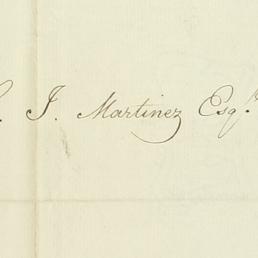 J. Martinez Esqr.